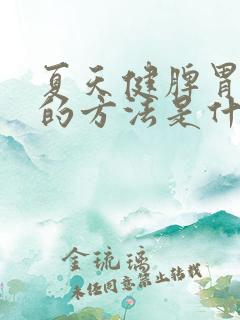 夏天健脾胃
的方法是什
金琉璃
未经同意禁止转载